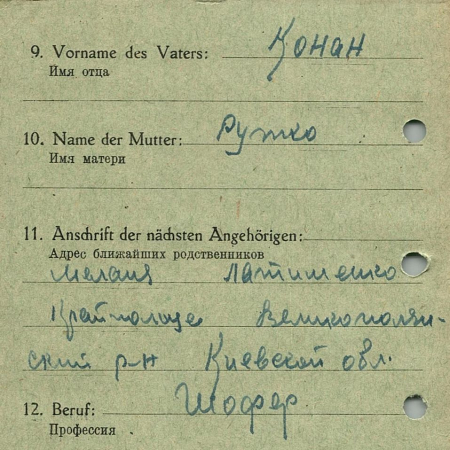 9. Vorname des Vaters: Конан
Имя отца
10. Name der Mutter: Рутко
Имя матери
11. Anschrift der nächsten Angehörigen:
Адрес ближайших родственников
Мелания Латишенко
ский р-н Киевской обл.
12. Beruf: Шофер
Профессия